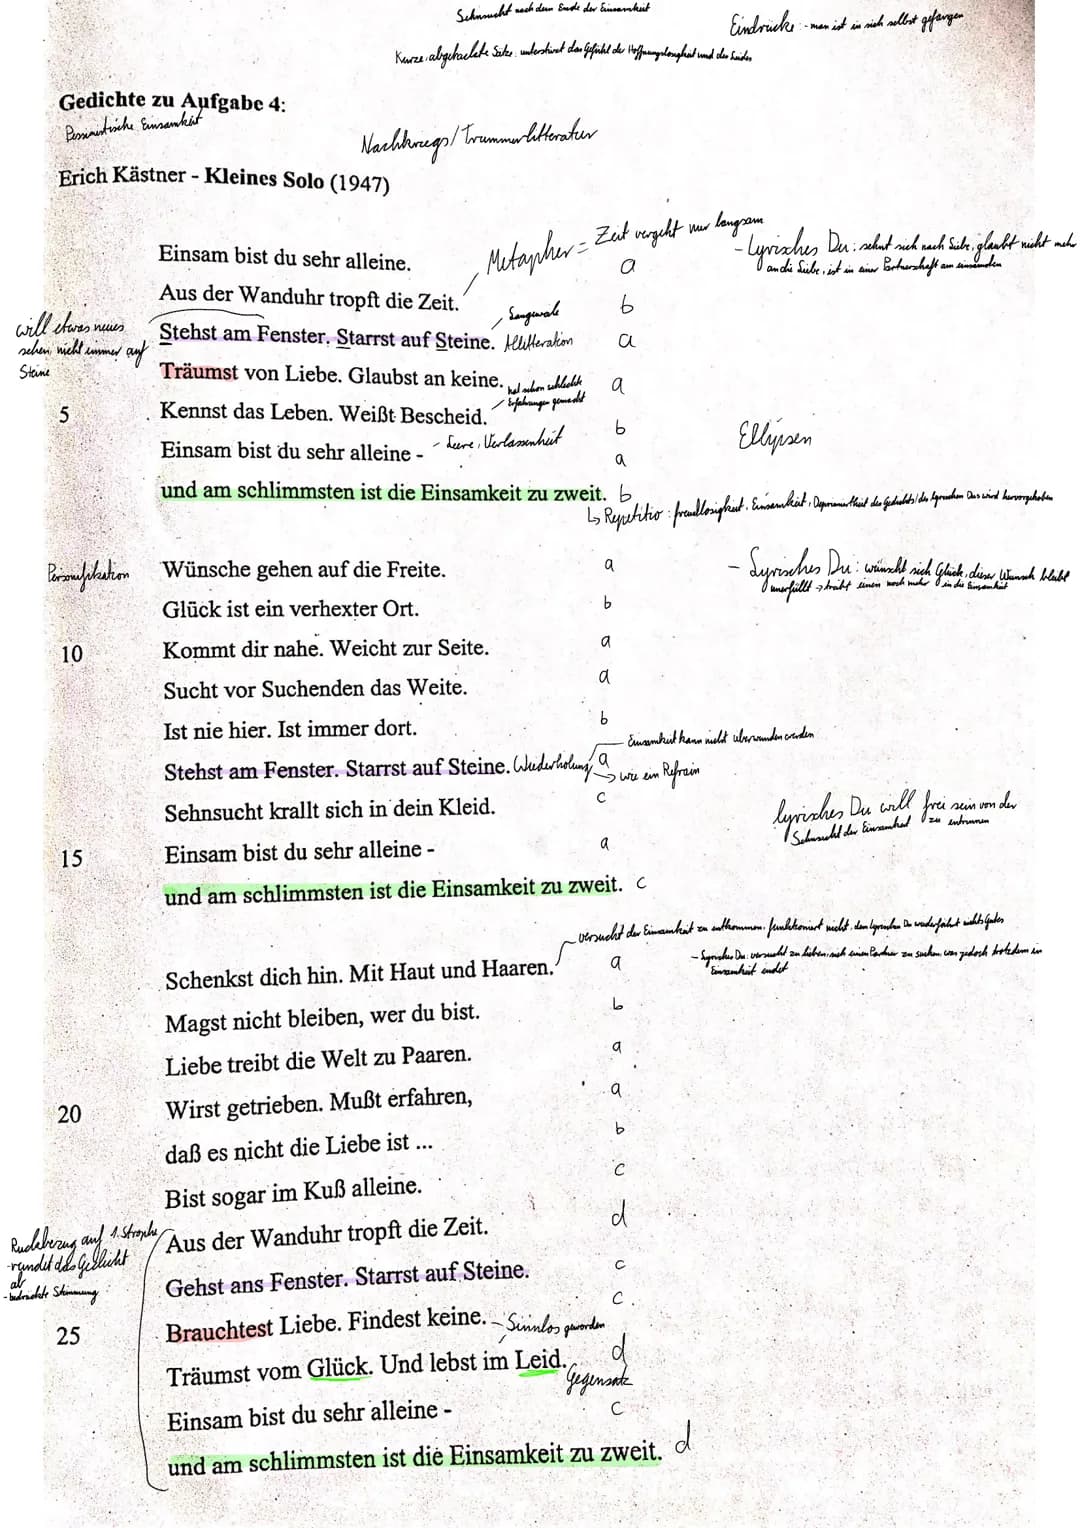 Sehnsucht nach dem Ende der Einsamkeit
Eindrücke: - man ist in sich selbst gefangen
Kurze, abgehackte Sätze unterstützt das Gefühl der Hoffnungslosigkeit und des Leides
Gedichte zu Aufgabe 4:
Pessimistische Einsamkeit
Nachkriegs/Trummerlitteratur
Erich Kästner - Kleines Solo (1947)
Metapher = Zeit vergeht nur langsam
- Lyrisches Du: sehnt sich nach Liebe, glaubt nicht mehr
an die Liebe, ist in einer Partnerschaft am einsamsten
Einsam bist du sehr alleine. a
Aus der Wanduhr tropft die Zeit. b
will etwas neues
sehen, nicht immer auf
Steine
Stehst am Fenster. Starrst auf Steine. Allitteration a
Träumst von Liebe. Glaubst an keine. a
hat schon schlechte
Erfahrungen gemacht
5 Kennst das Leben. Weißt Bescheid. b
Einsam bist du sehr alleine - - Leere, Verlassenheit a
Ellipsen
und am schlimmsten ist die Einsamkeit zu zweit. b
↳ Repetitio: freudlosigkeit, Einsamkeit, des Gedichts/des lyrischen Dus wird hervorgehoben
Personifikation Wünsche gehen auf die Freite. a
- Lyrisches Du: wünscht sich Glück, dieser Wunsch bleibt
unerfüllt → treibt einen noch mehr in die Einsamkeit
Glück ist ein verhexter Ort. b
10 Kommt dir nahe. Weicht zur Seite. a
Sucht vor Suchenden das Weite. a
Ist nie hier. Ist immer dort. b
Einsamkeit kann nicht überwunden werden
Stehst am Fenster. Starrst auf Steine. Wiederholung a
→ wie ein Refrain
Sehnsucht krallt sich in dein Kleid. c
lyrisches Du will frei sein von der
Sehnsucht der Einsamkeit zu entrinnen
15 Einsam bist du sehr alleine - a
und am schlimmsten ist die Einsamkeit zu zweit. c
versucht der Einsamkeit zu entkommen, funktioniert nicht, dem lyrischen Du wiederfährt nichts Gutes
- Lyrisches Du: versucht zu lieben, sich einen Partner zu suchen, was jedoch trotzdem in
Einsamkeit endet
Schenkst dich hin. Mit Haut und Haaren. a
Magst nicht bleiben, wer du bist. b
Liebe treibt die Welt zu Paaren. a
20 Wirst getrieben. Mußt erfahren, a
daß es nicht die Liebe ist ... b
Bist sogar im Kuß alleine. c
Rückbezug auf 1. Strophe
- rundet das Gedicht
ab
- bedrückte Stimmung
Aus der Wanduhr tropft die Zeit. d
Gehst ans Fenster. Starrst auf Steine. c
25 Brauchtest Liebe. Findest keine. - Sinnlos geworden c
Träumst vom Glück. Und lebst im Leid. d
Gegensatz
Einsam bist du sehr alleine - c
und am schlimmsten ist die Einsamkeit zu zweit. d